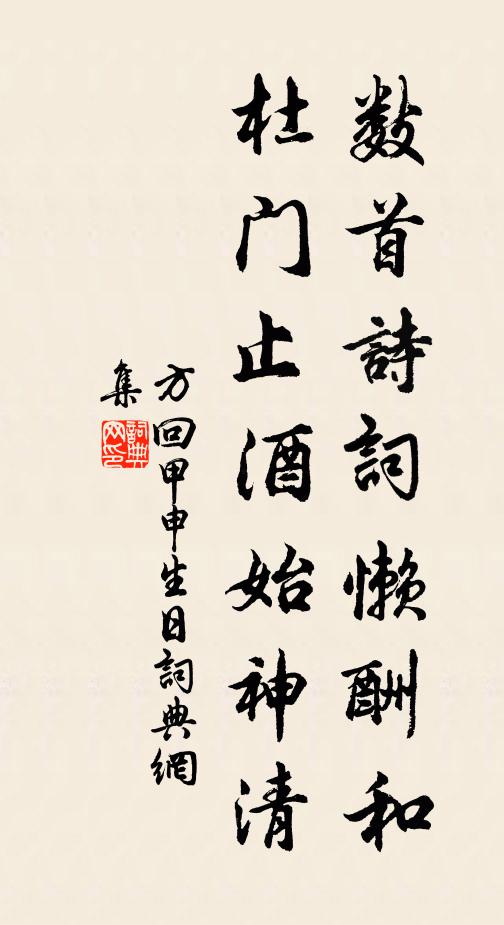 数首詩詞懒酬和
杜门止酒始神清
方回甲申生日詞典網
集
詞典网印